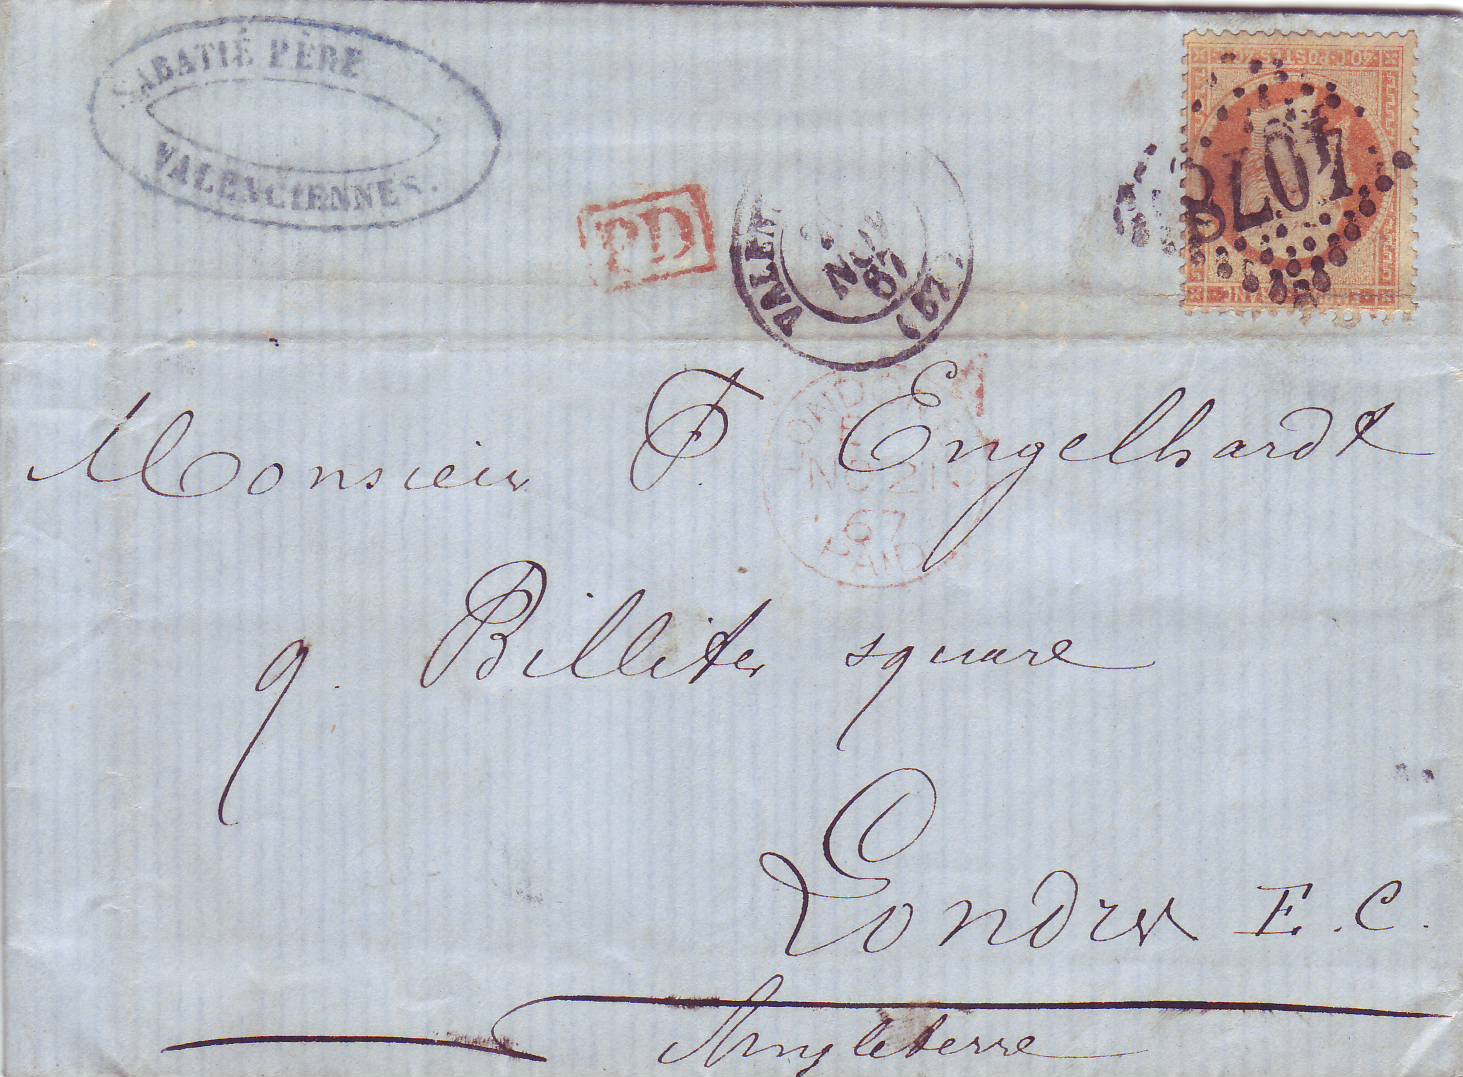 SABATIÉ PÈRE
VALENCIENNES.
PD
VALEN
NOV
67
40 C. POSTES 40 C
4078
LONDON
NO 21
67
PAID
Monsieur F. Engelhardt
9. Billiter square
Londres E. C.
Angleterre